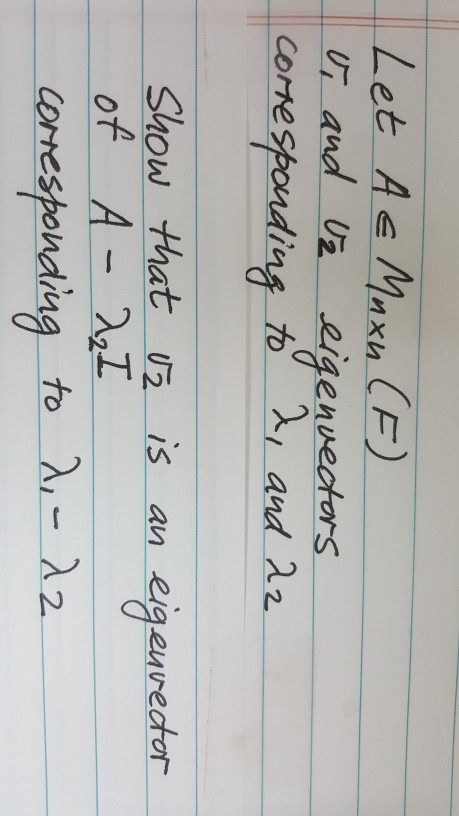 Let A ∈ Mn×n (F)
v₁ and v₂ eigenvectors
corresponding to λ₁ and λ₂
Show that v₂ is an eigenvector
of A - λ₂I
corresponding to λ₁ - λ₂